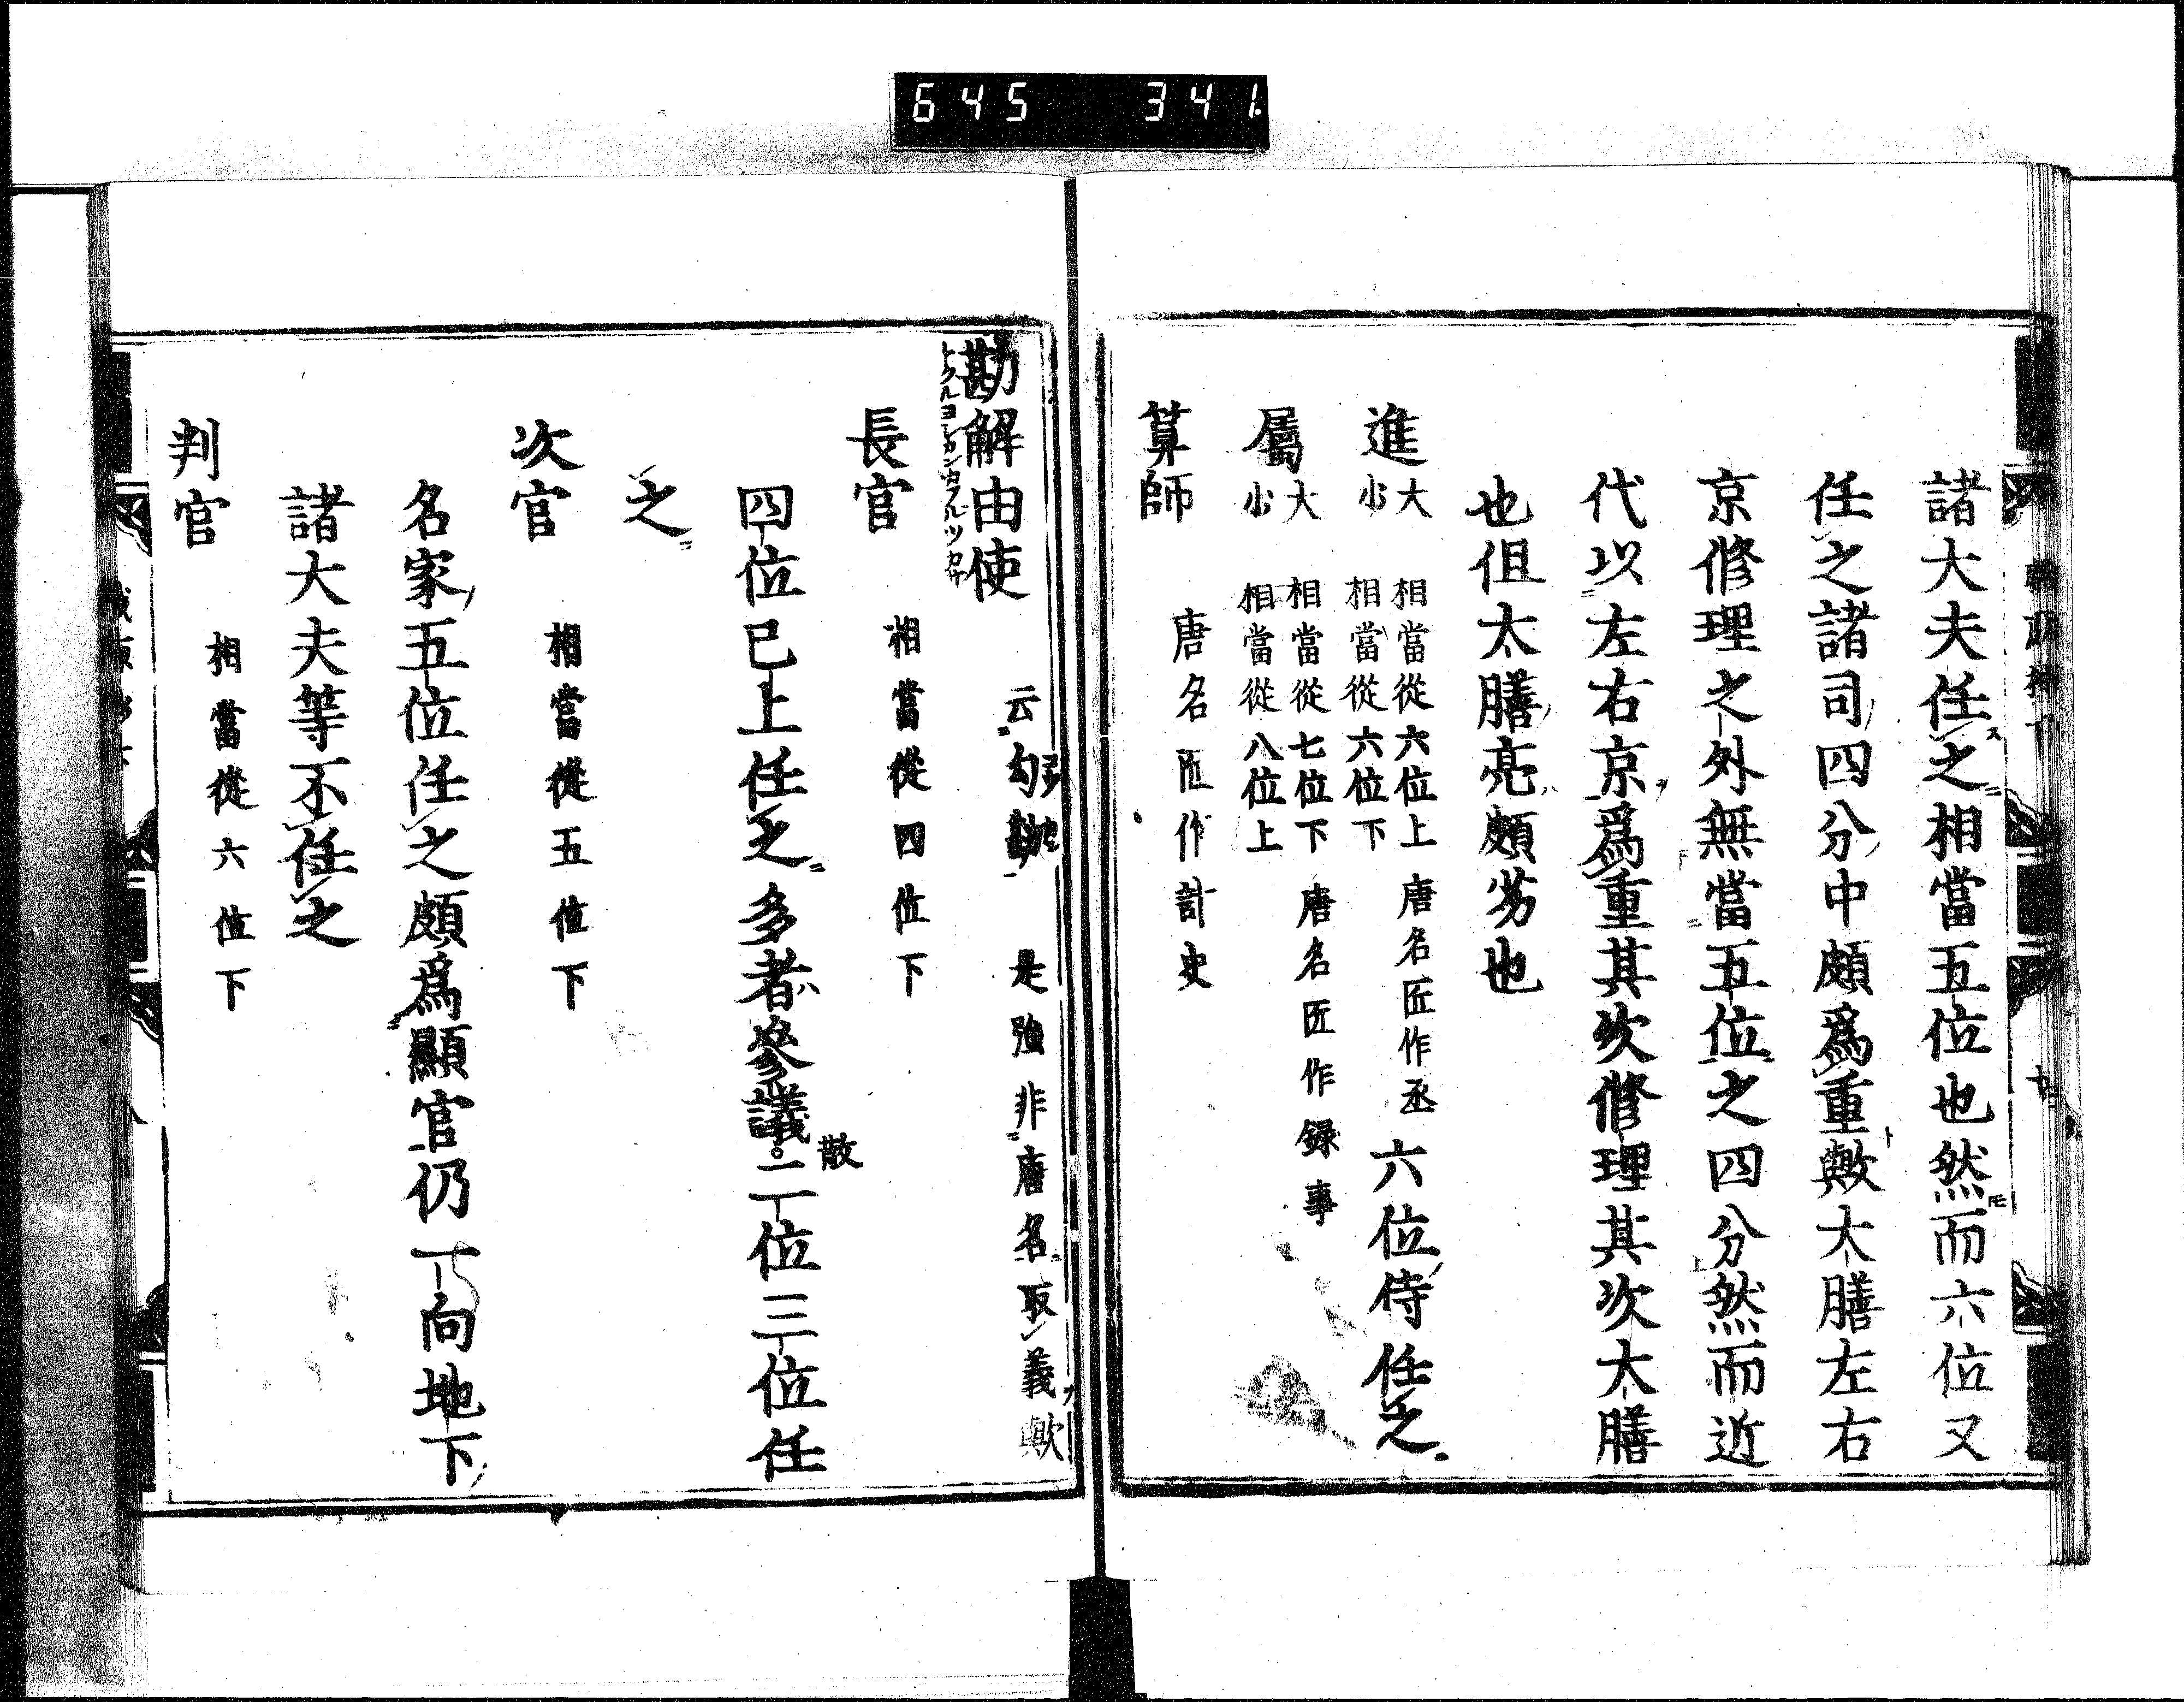 645 341
諸大夫任之相當五位也然而六位又
任之諸司四分中頗爲重歟大膳左右
京修理之外無當五位之四分然而近
代以左右京爲重其次修理其次大膳
也但太膳亮頗劣也
進 大 相當從六位上 唐名匠作丞 六位侍任之
少 相當從六位下
屬 大 相當從七位下 唐名匠作録事
少 相當從八位上
算師 唐名匠作計史
勘解由使 云勾勘 是強非唐名取義歟
トクルヨシカンカフルツカサ
長官 相當從四位下
四位已上任之多者參議散二位三位任
之
次官 相當從五位下
名家五位任之頗爲顯官仍一向地下
諸大夫等不任之
判官 相當從六位下